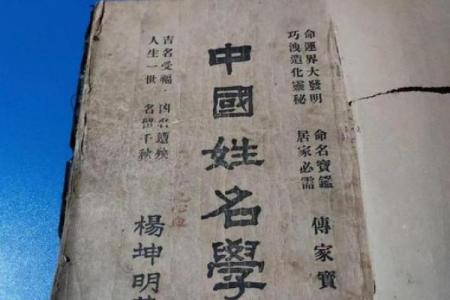 命運界大發明
巧洩造化靈秘
命名寶鑑
居家必需
傳家寶
中國姓名學
吉名受福 凶名遺殃
人生一世 名留千秋
楊坤明